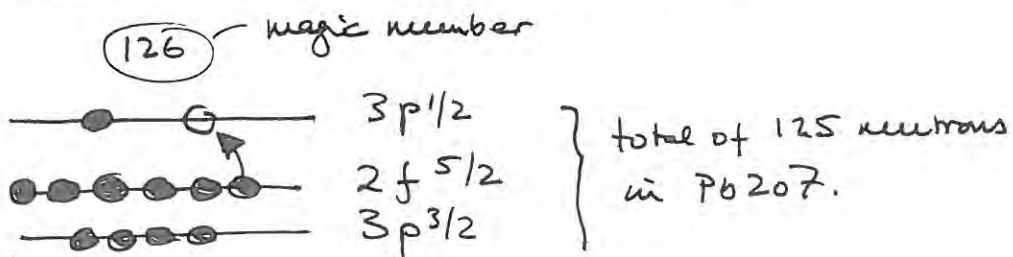 126 magic number
3p1/2
2f5/2
3p3/2
total of 125 neutrons
in Pb207.